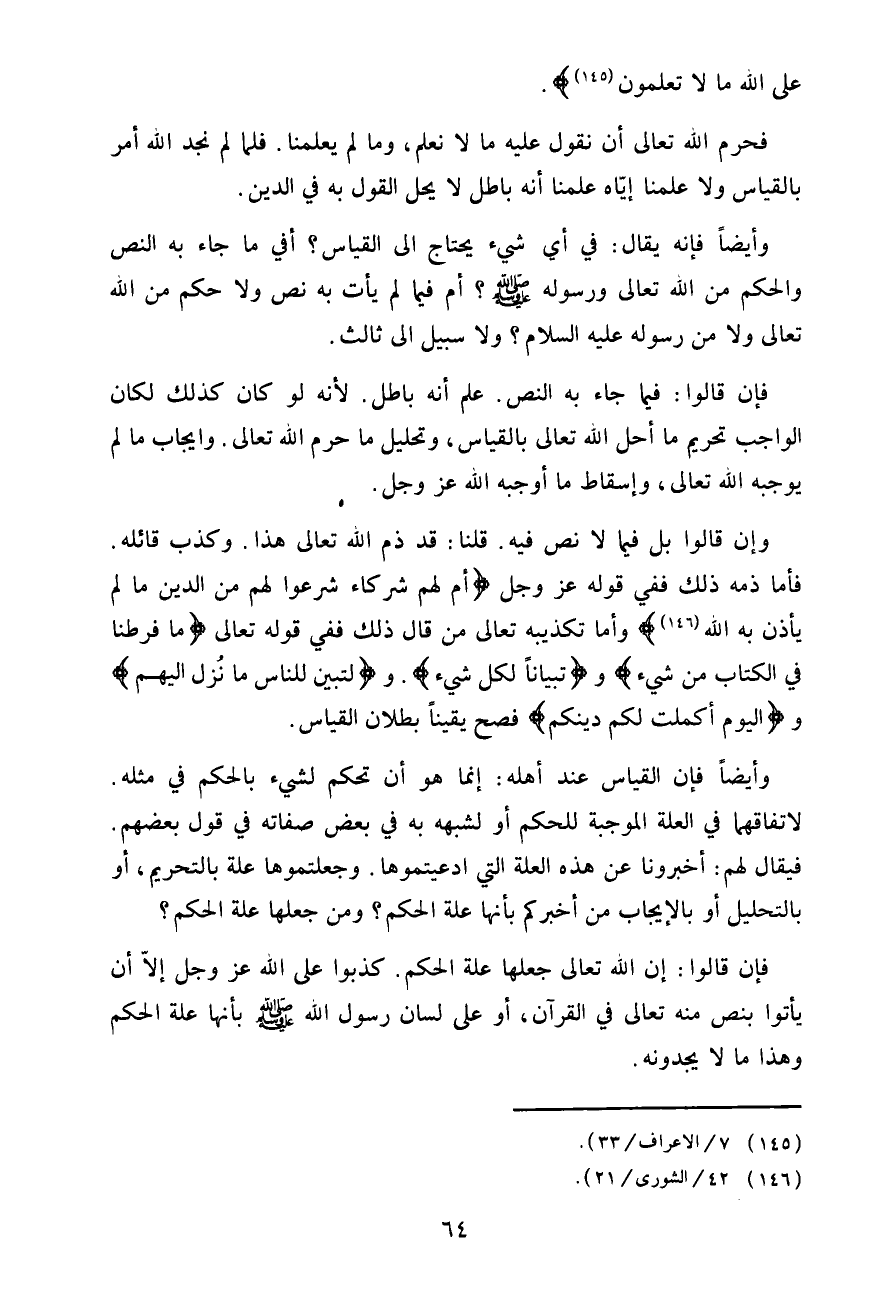 على الله ما لا تعلمون (١٤٥)﴾ .
فحرم الله تعالى أن نقول عليه ما لا نعلم، وما لم يعلمنا. فلما لم نجد الله أمر
بالقياس ولا علمنا إيّاه علمنا أنه باطل لا يحل القول به في الدين.
وأيضاً فإنه يقال: في أي شيء يحتاج الى القياس؟ أفي ما جاء به النص
والحكم من الله تعالى ورسوله ﷺ ؟ أم فيما لم يأت به نص ولا حكم من الله
تعالى ولا من رسوله عليه السلام؟ ولا سبيل الى ثالث.
فإن قالوا: فيما جاء به النص. علم أنه باطل. لأنه لو كان كذلك لكان
الواجب تحريم ما أحل الله تعالى بالقياس، وتحليل ما حرم الله تعالى. وايجاب ما لم
يوجبه الله تعالى، وإسقاط ما أوجبه الله عز وجل.
وإن قالوا بل فيما لا نص فيه. قلنا: قد ذم الله تعالى هذا. وكذب قائله.
فأما ذمه ذلك ففي قوله عز وجل ﴿أم لهم شركاء شرعوا لهم من الدين ما لم
يأذن به الله (١٤٦)﴾ وأما تكذيبه تعالى من قال ذلك ففي قوله تعالى ﴿ما فرطنا
في الكتاب من شيء﴾ و ﴿تبياناً لكل شيء﴾. و ﴿لتبين للناس ما نُزل اليهم﴾
و ﴿اليوم أكملت لكم دينكم﴾ فصح يقيناً بطلان القياس.
وأيضاً فإن القياس عند أهله: إنما هو أن تحكم لشيء بالحكم في مثله.
لاتفاقهما في العلة الموجبة للحكم أو لشبهه به في بعض صفاته في قول بعضهم.
فيقال لهم: أخبرونا عن هذه العلة التي ادعيتموها. وجعلتموها علة بالتحريم، أو
بالتحليل أو بالإيجاب من أخبركم بأنها علة الحكم؟ ومن جعلها علة الحكم؟
فإن قالوا: إن الله تعالى جعلها علة الحكم. كذبوا على الله عز وجل إلاّ أن
يأتوا بنص منه تعالى في القرآن، أو على لسان رسول الله ﷺ بأنها علة الحكم
وهذا ما لا يجدونه.
(١٤٥) ٧/ الاعراف/ ٣٣).
(١٤٦) ٤٢/ الشورى/ ٢١).
٦٤